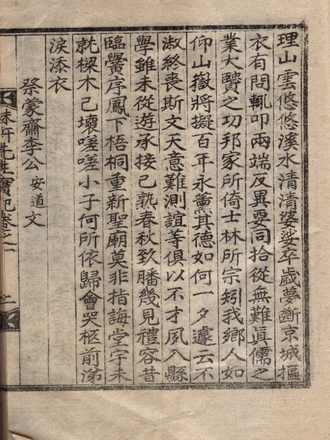 理山雲悠悠溪水清清婆娑卒歲夢斷京城摳
衣有問輒叩兩端反異要同拾從無難眞儒之
業大贒之功邦家所倚士林所宗矧我鄕人如
仰山嶽將擬百年永薰其德如何一夕遽云不
淑終喪斯文天意難測誼等俱以不才夙入縣
學雖未從遊承接已熟春秋致膰幾見禮容昔
臨黌序鳳下梧桐重新聖廟莫非指誨堂宇未
訖樑木已壞嗟嗟小子何所依歸會哭柩前涕
淚添衣
祭蒙齋李公安道文
先生實記卷之一